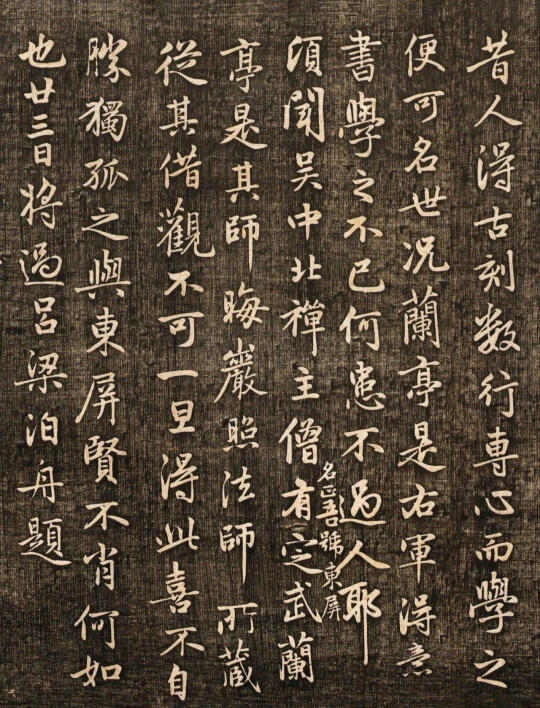 昔人得古刻数行専心而學之
便可名世况蘭亭是右軍得意
書學之不已何患不過人耶
頃聞吴中北禪主僧名正吾號東屏有定武蘭
亭是其師晦巖照法師所蔵
從其借觀不可一旦得此喜不自
勝獨孤之與東屏賢不肖何如
也廿三日将過吕梁泊舟題